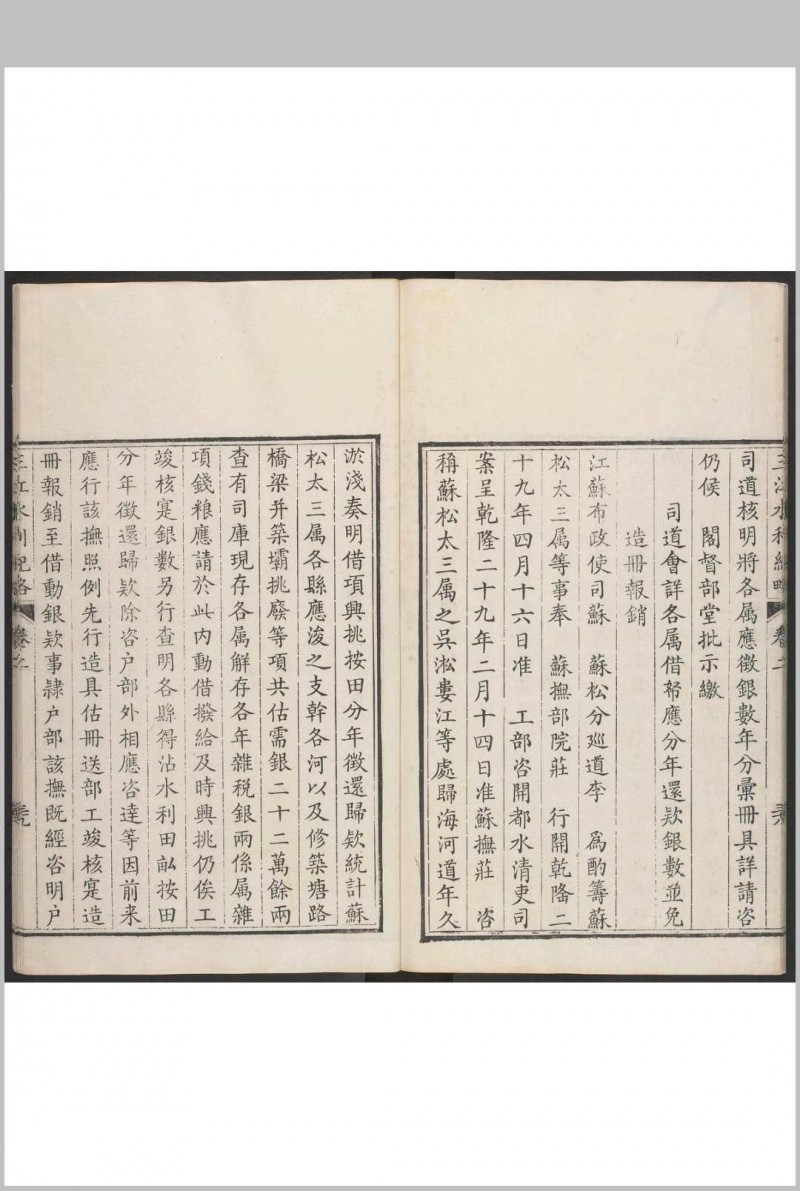 三江水利紀略 卷二
司道核明將各属應徵銀數年分彙冊具詳請咨
仍候 閣督部堂批示繳
司道會詳各属借帑應分年還欵銀數並免
造冊報銷
江蘇布政使司蘇 蘇松分廵道李 為酌籌蘇
松太三属等事奉 蘇撫部院莊 行開乾隆二
十九年四月十六日准 工部咨開都水清吏司
案呈乾隆二十九年二月十四日准蘇撫莊 咨
稱蘇松太三属之吳淞婁江等處歸海河道年久
淤淺奏明借項興挑按田分年徵還歸欵統計蘇
松太三属各縣應浚之支幹各河以及修築塘路
橋梁并築壩挑廢等項共估需銀二十二萬餘兩
查有司庫現存各属解存各年雜税銀兩係属雜
項錢粮應請於此内動借撥給及時興挑仍俟工
竣核寔銀數另行查明各縣得沾水利田畝按田
分年徵還歸欵除咨户部外相應咨達等因前来
應行該撫照例先行造具估冊送部工竣核寔造
冊報銷至借動銀欵事隷户部該撫既經咨明户
三江水利紀略 卷二